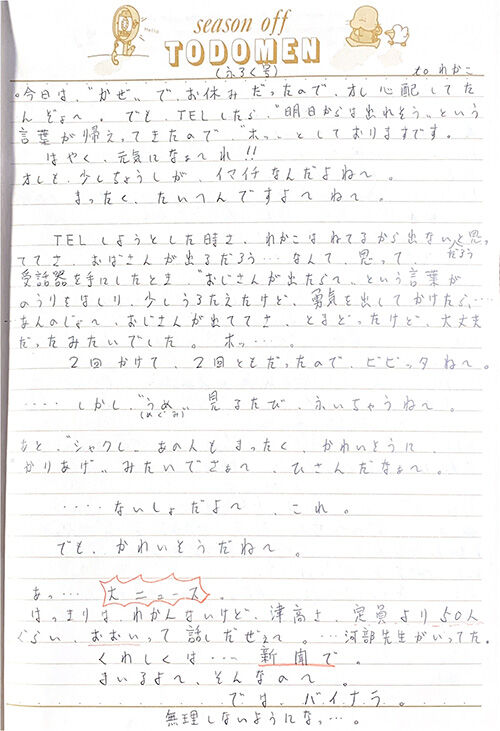 Hello
season off
TODOMEN
(ふろく号)
to わかこ
。今日は、"かぜ"でお休みだったので、オレ心配してた
んぞぉ〜。でも、TELしたら、"明日からは出れそう"という
言葉が帰えってきたので"ホッ"としておりますです。
はやく、元気になぁ〜れ!!
オレも、少しちょうしが、イマイチなんだよね〜。
まったく、たいへんですよ〜ね〜。
TELしようとした時さ、わかこはねてるから出ないと思っ
だろう
ててさ、おばさんが出るだろう…なんて、思って
受話器を手にしたとき"おじさんが出たら〜"という言葉が
のうりをはしり、少しうろたえたけど、勇気を出してかけたら、…
あんのじょ〜、おじさんが出ててさ、とまどったけど、大丈夫
だったみたいでした。ホッ…。
2回かけて、2回ともだったので、ビビッタね〜。
‥‥しかし、"うめ"見るたび、ふいちゃうね〜。
(めぐみ)
あと、"シャクし"あの人もまったく、かわいそうに、
かりあげ"みたいでさぁ〜、ひさんだなぁ〜。
‥‥ないしょだよ〜、これ。
でも、かわいそうだね〜。
あっ…大ニュース。
はっきりはわかんないけど、津高さ、定員より50人
ぐらい、おおいって話しだぜぇ〜。…河部先生がいってた。
くわしくは…新聞で。
まいるよ〜、そんなの〜。
では、バイナラ。
無理しないようになっ…。